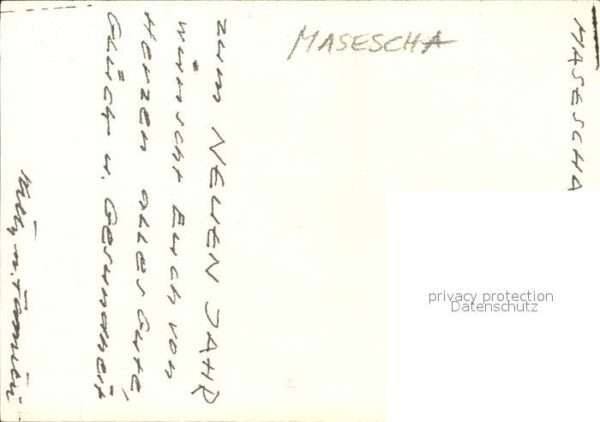 MASESCHA
MASESCHA
ZUM NEUEN JAHR
wünscht Euch von
Herzen alles Gute,
Glück u. Gesundheit
Willy u. Familie
privacy protection
Datenschutz